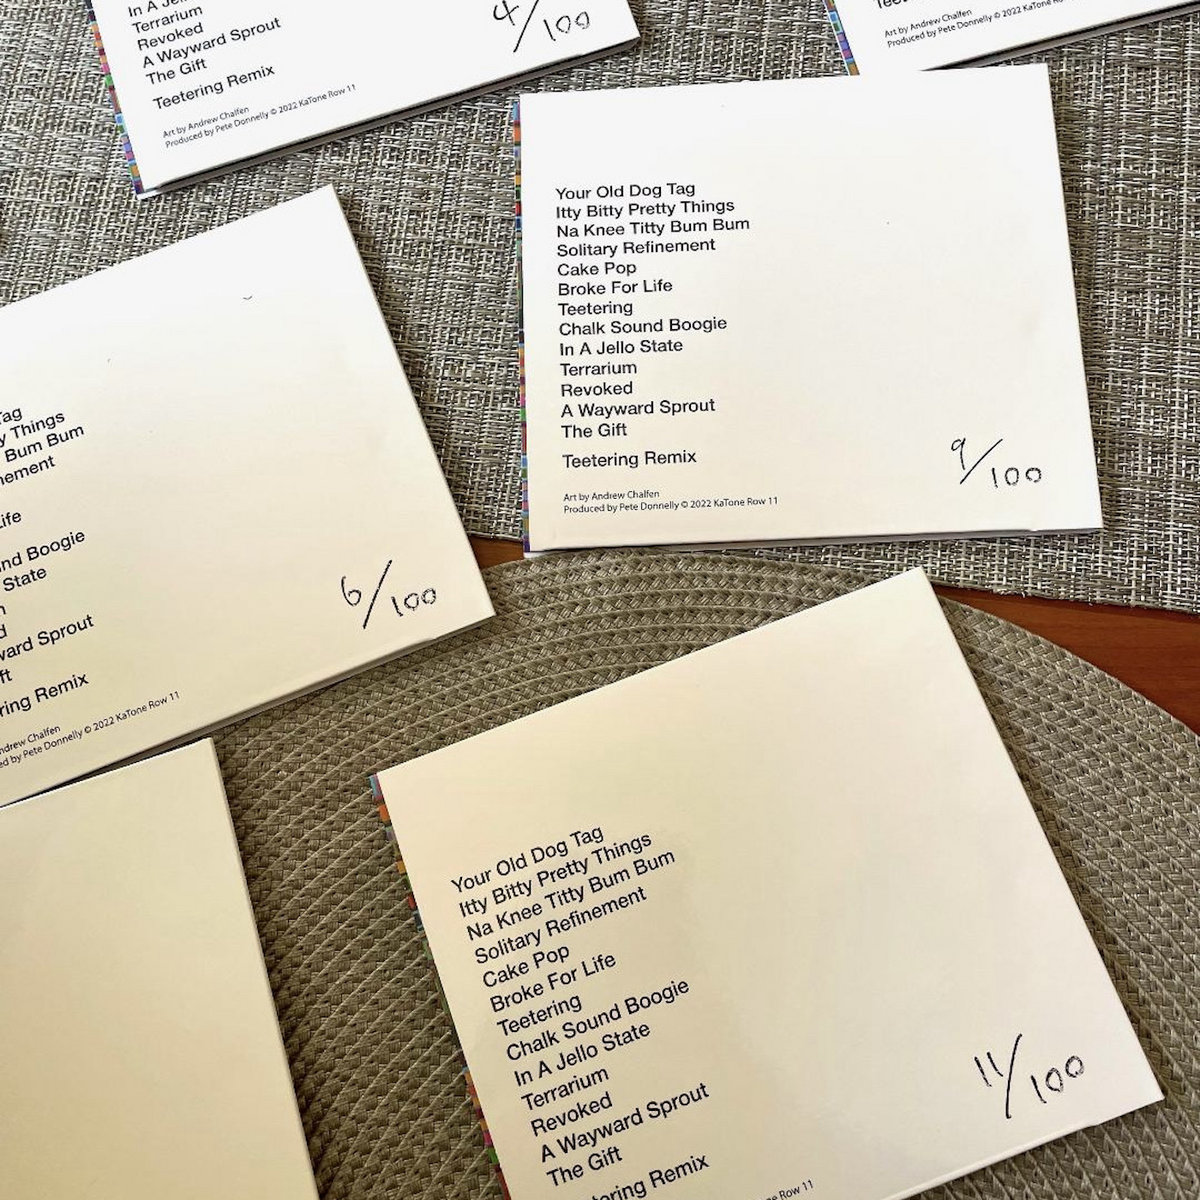 In A Jello
Terrarium
Revoked
A Wayward Sprout
The Gift
Teetering Remix
Art by Andrew Chalfen
Produced by Pete Donnelly © 2022 KaTone Row 11
4/100
Art by Andrew Chalfen
Produced by Pete Donnelly © 2022 KaTone Row
Your Old Dog Tag
Itty Bitty Pretty Things
Na Knee Titty Bum Bum
Solitary Refinement
Cake Pop
Broke For Life
Teetering
Chalk Sound Boogie
In A Jello State
Terrarium
Revoked
A Wayward Sprout
The Gift
Teetering Remix
Art by Andrew Chalfen
Produced by Pete Donnelly © 2022 KaTone Row 11
9/100
Tag
y Things
Bum Bum
nement
ife
nd Boogie
State
d
ward Sprout
ft
ring Remix
ndrew Chalfen
ed by Pete Donnelly © 2022 KaTone Row 11
6/100
Your Old Dog Tag
Itty Bitty Pretty Things
Na Knee Titty Bum Bum
Solitary Refinement
Cake Pop
Broke For Life
Teetering
Chalk Sound Boogie
In A Jello State
Terrarium
Revoked
A Wayward Sprout
The Gift
tering Remix
ne Row 11
11/100